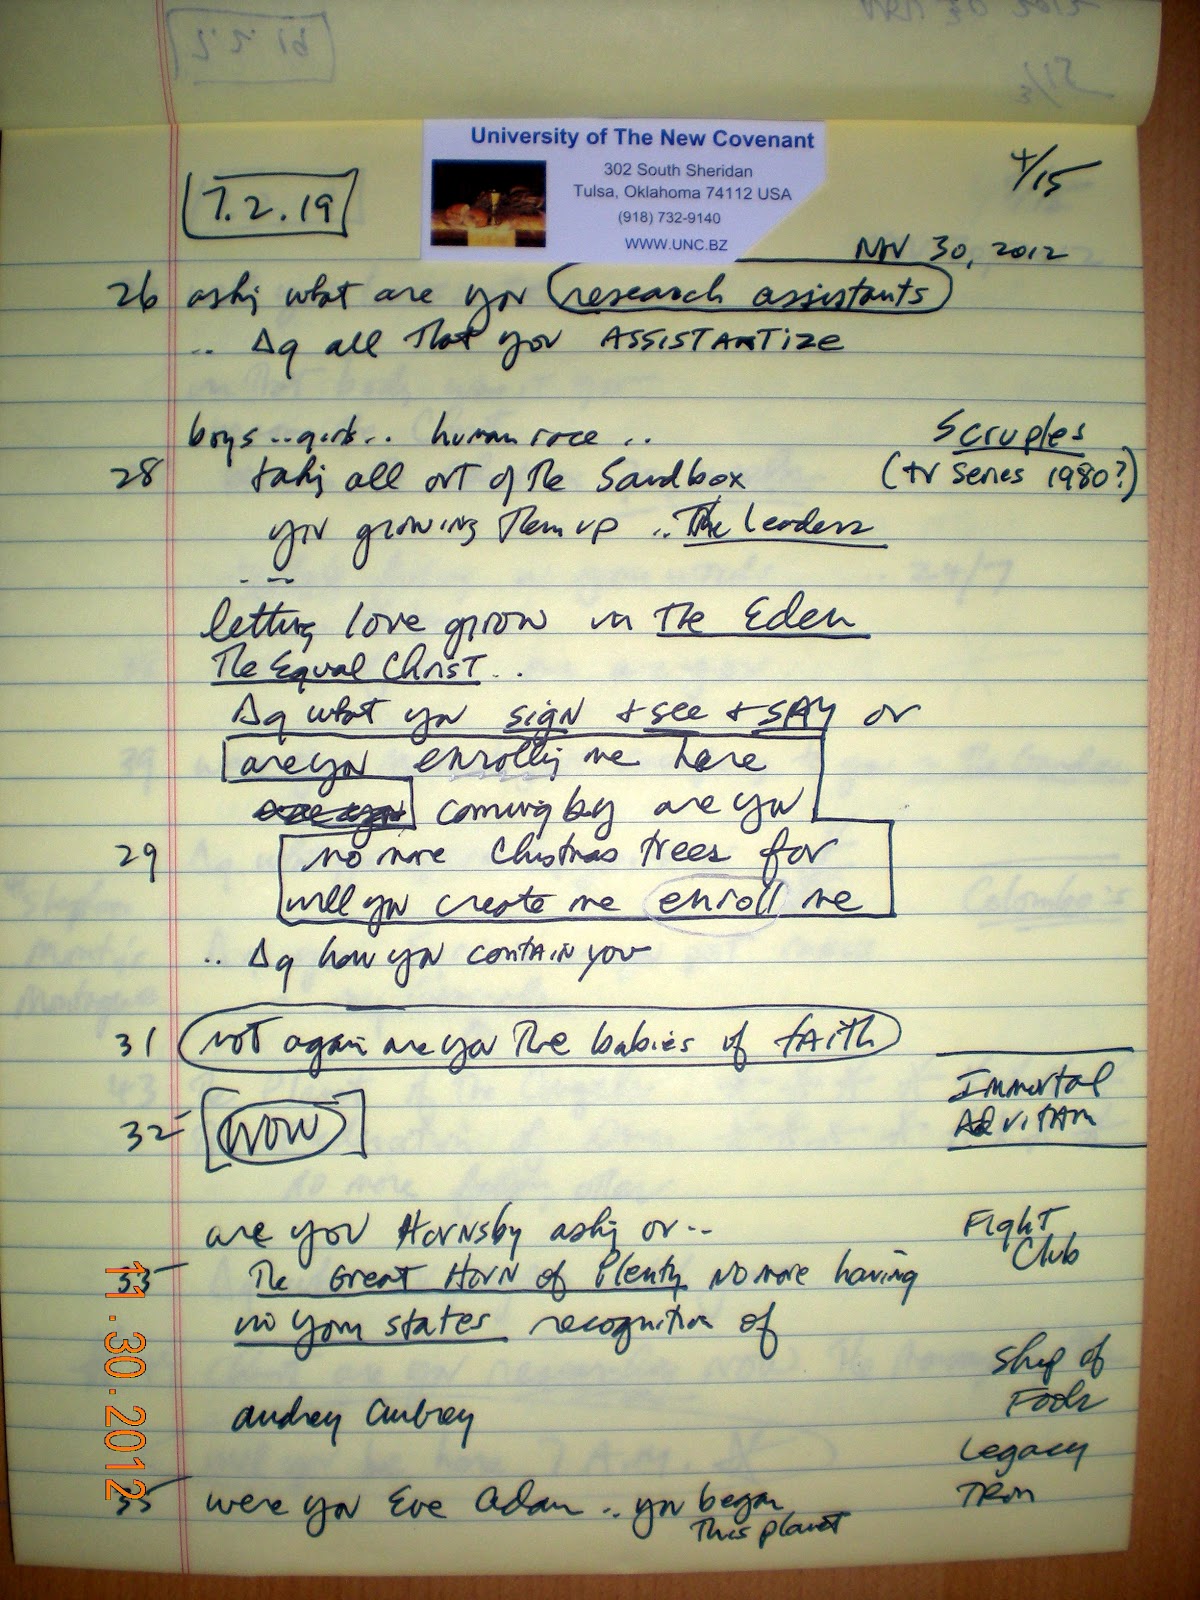 University of The New Covenant
302 South Sheridan
Tulsa, Oklahoma 74112 USA
(918) 732-9140
WWW.UNC.BZ
4/15
7.2.19
Nov 30, 2012
26 askg what are you research assistants
.. Δq all That you ASSISTANTIZE
boys .. girls .. human race ..
Scruples
(tv series 1980?)
28 takg all out of The Sandbox
you growing Them up .. The Leaders
letting love grow in The Eden
The Equal Christ ..
Δq what you sign + see + SAY or
are you enrollg me here
coming by are you
29 no more Christmas trees for
will you create me enroll me
.. Δq how you contain you
31 not again are you The babies of faith
Immortal
Ad vitam
32 NOW
are you Hornsby askg or ..
Fight
Club
33 The Great Horn of Plenty no more having
no your states recognition of
Ship of
Fools
audrey aubrey
Legacy
Tron
35 were you Eve Adam .. you began
This planet
11.30.2012